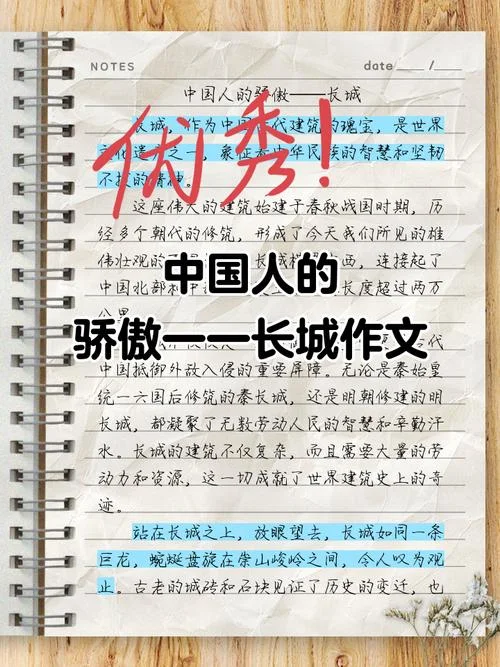 NOTES date ___ / ___
中国人的骄傲——长城
长城，作为中国代建筑的瑰宝，是世界
文化遗产之一，象征着中华民族的智慧和坚韧
不拔的精神。
优秀！
这座伟大的建筑始建于春秋战国时期，历
经多个朝代的修筑，形成了今天我们所见的雄
伟壮观的 西，连接起了
中国北部和 长度超过两万
中国人的
骄傲——长城作文
代
中国抵御外敌入侵的重要屏障。无论是秦始皇
统一六国后修筑的秦长城，还是明朝修建的明
长城，都凝聚了无数劳动人民的智慧和辛勤汗
水。长城的建筑不仅复杂，而且需要大量的劳
动力和资源，这一切成就了世界建筑史上的奇
迹。
站在长城之上，放眼望去，长城如同一条
巨龙，蜿蜒盘旋在崇山峻岭之间，令人叹为观
止。古老的城砖和石块见证了历史的变迁，也